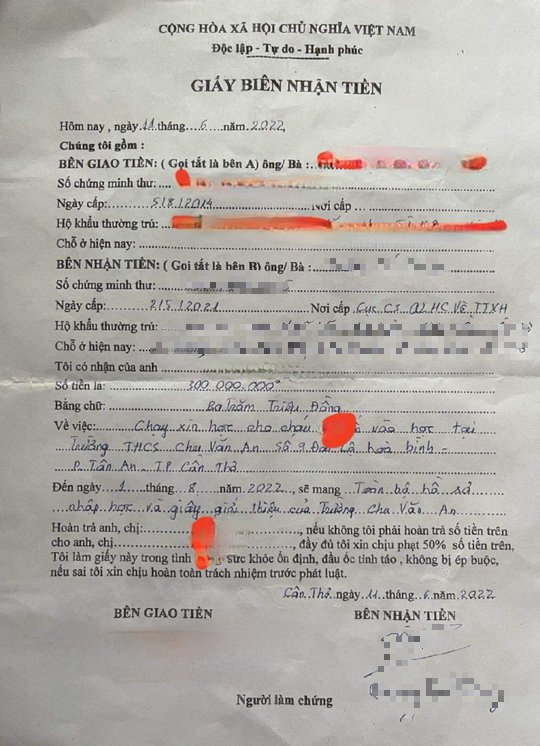 CỘNG HÒA XÃ HỘI CHỦ NGHĨA VIỆT NAM
Độc lập - Tự do - Hạnh phúc
GIẤY BIÊN NHẬN TIỀN
Hôm nay , ngày 11 tháng 6 năm 2022,
Chúng tôi gồm :
BÊN GIAO TIỀN: ( Gọi tắt là bên A) ông/ Bà :
Số chứng minh thư:
Ngày cấp: 5/8/2014 Nơi cấp
Hộ khẩu thường trú:
Chỗ ở hiện nay:
BÊN NHẬN TIỀN: ( Gọi tắt là bên B) ông/ Bà :
Số chứng minh thư:
Ngày cấp: 2/5/2021 Nơi cấp Cục CS QLHC Về TTXH
Hộ khẩu thường trú:
Chỗ ở hiện nay:
Tôi có nhận của anh
Số tiền là: 300.000.000đ
Bằng chữ: Ba Trăm Triệu Đồng
Về việc: Chạy xin học cho cháu vào học tại
Trường THCS Chu Văn An Số 9 Đại Lộ hoà bình -
P. Tân An - T.P Cần Thơ
Đến ngày 1 tháng 8 năm 2022, sẽ mang Toàn bộ hồ sơ
nhập học và giấy giới thiệu của Trường Chu Văn An
Hoàn trả anh, chị: , nếu không tôi phải hoàn trả số tiền trên
cho anh, chị , đầy đủ tôi xin chịu phạt 50% số tiền trên,
Tôi làm giấy này trong tình sức khỏe ổn định, đầu óc tỉnh táo , không bị ép buộc,
nếu sai tôi xin chịu hoàn toàn trách nhiệm trước phát luật.
Cần Thơ ngày 11 tháng 6 năm 2022
BÊN GIAO TIỀN BÊN NHẬN TIỀN
Người làm chứng